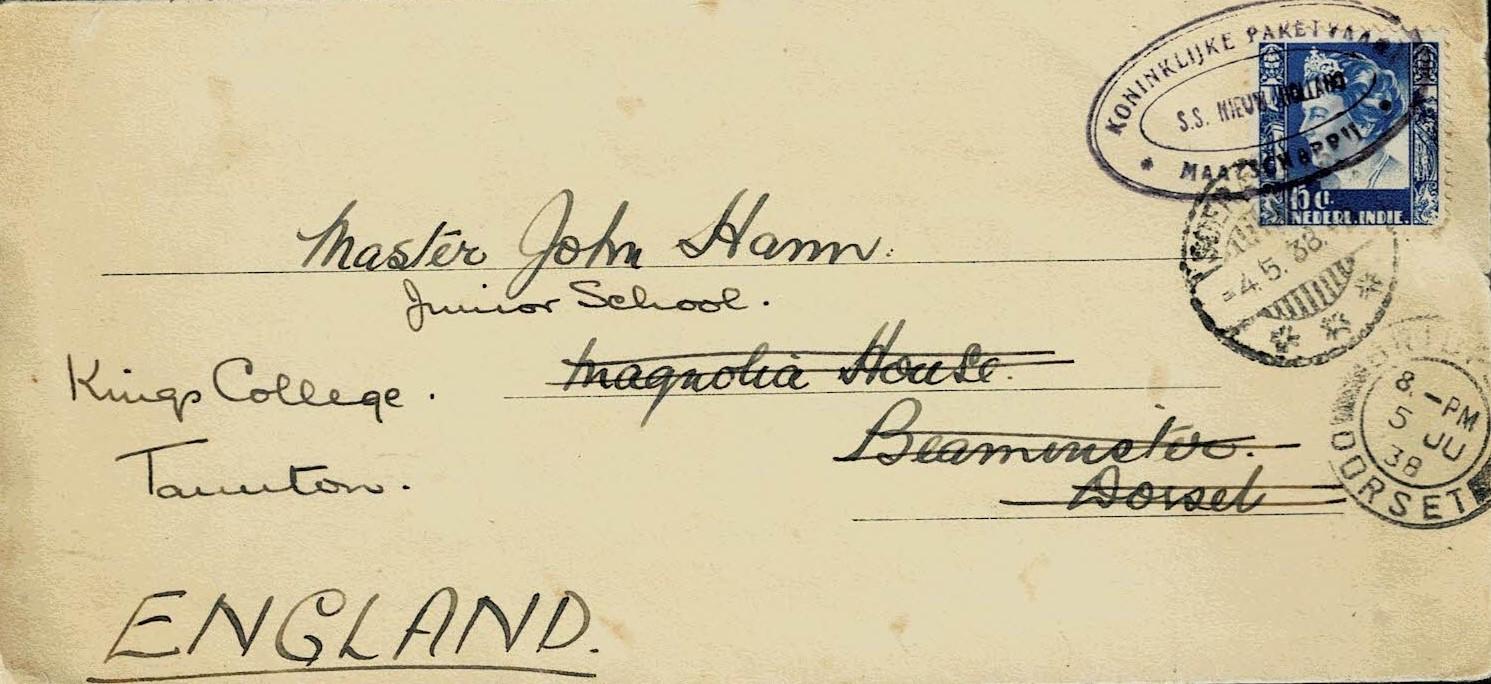 KONINKLIJKE PAKETVAART
S.S. NIEUW HOLLAND
MAATSCHAPPIJ
15 ct.
NEDERL. INDIE.
-4.5.38.
Master John Hann.
Junior School.
Kings College.
Magnolia House.
Beaminster.
Dorset
Taunton.
8.-PM
5 JU
38
DORSET
ENGLAND.